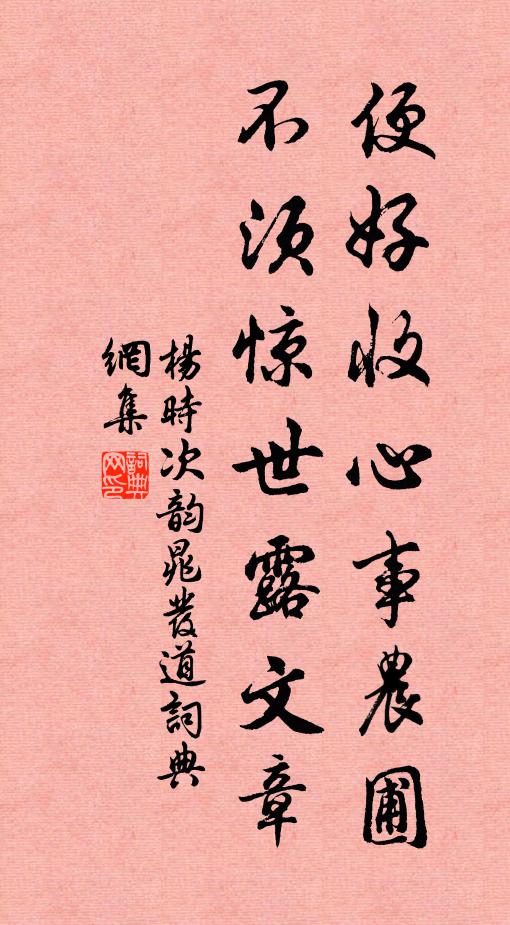 便好收心事農圃
不須惊世露文章
楊時次韵晁發道詞典
網集
詞典網印